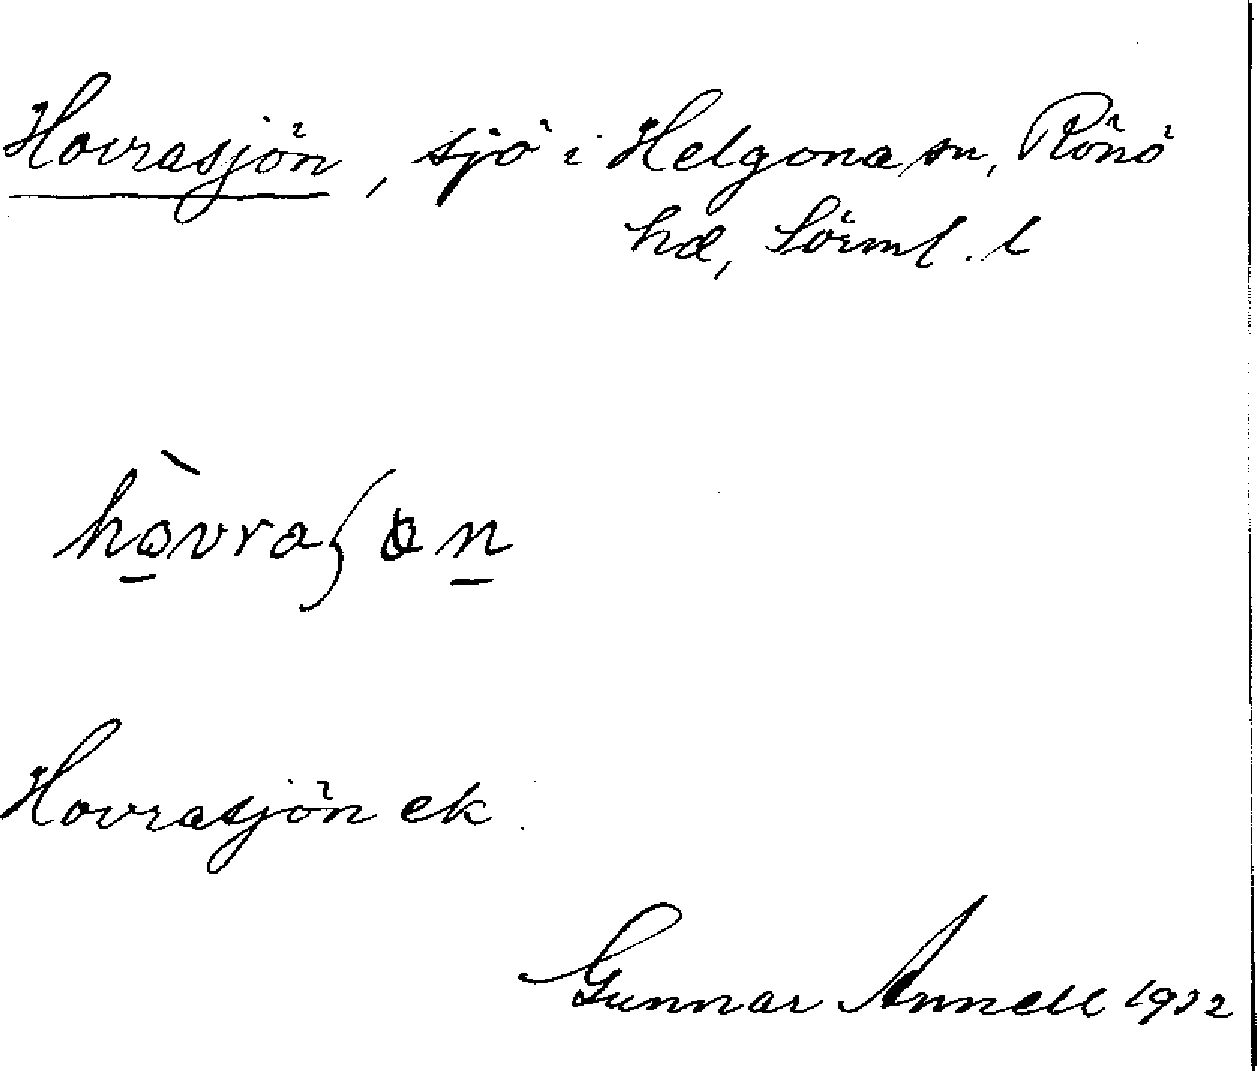 Hovrasjön, sjö i Helgona sn, Rönö
hd, Sörml. l
Hovrasjön ek.
Gunnar Annell 1932